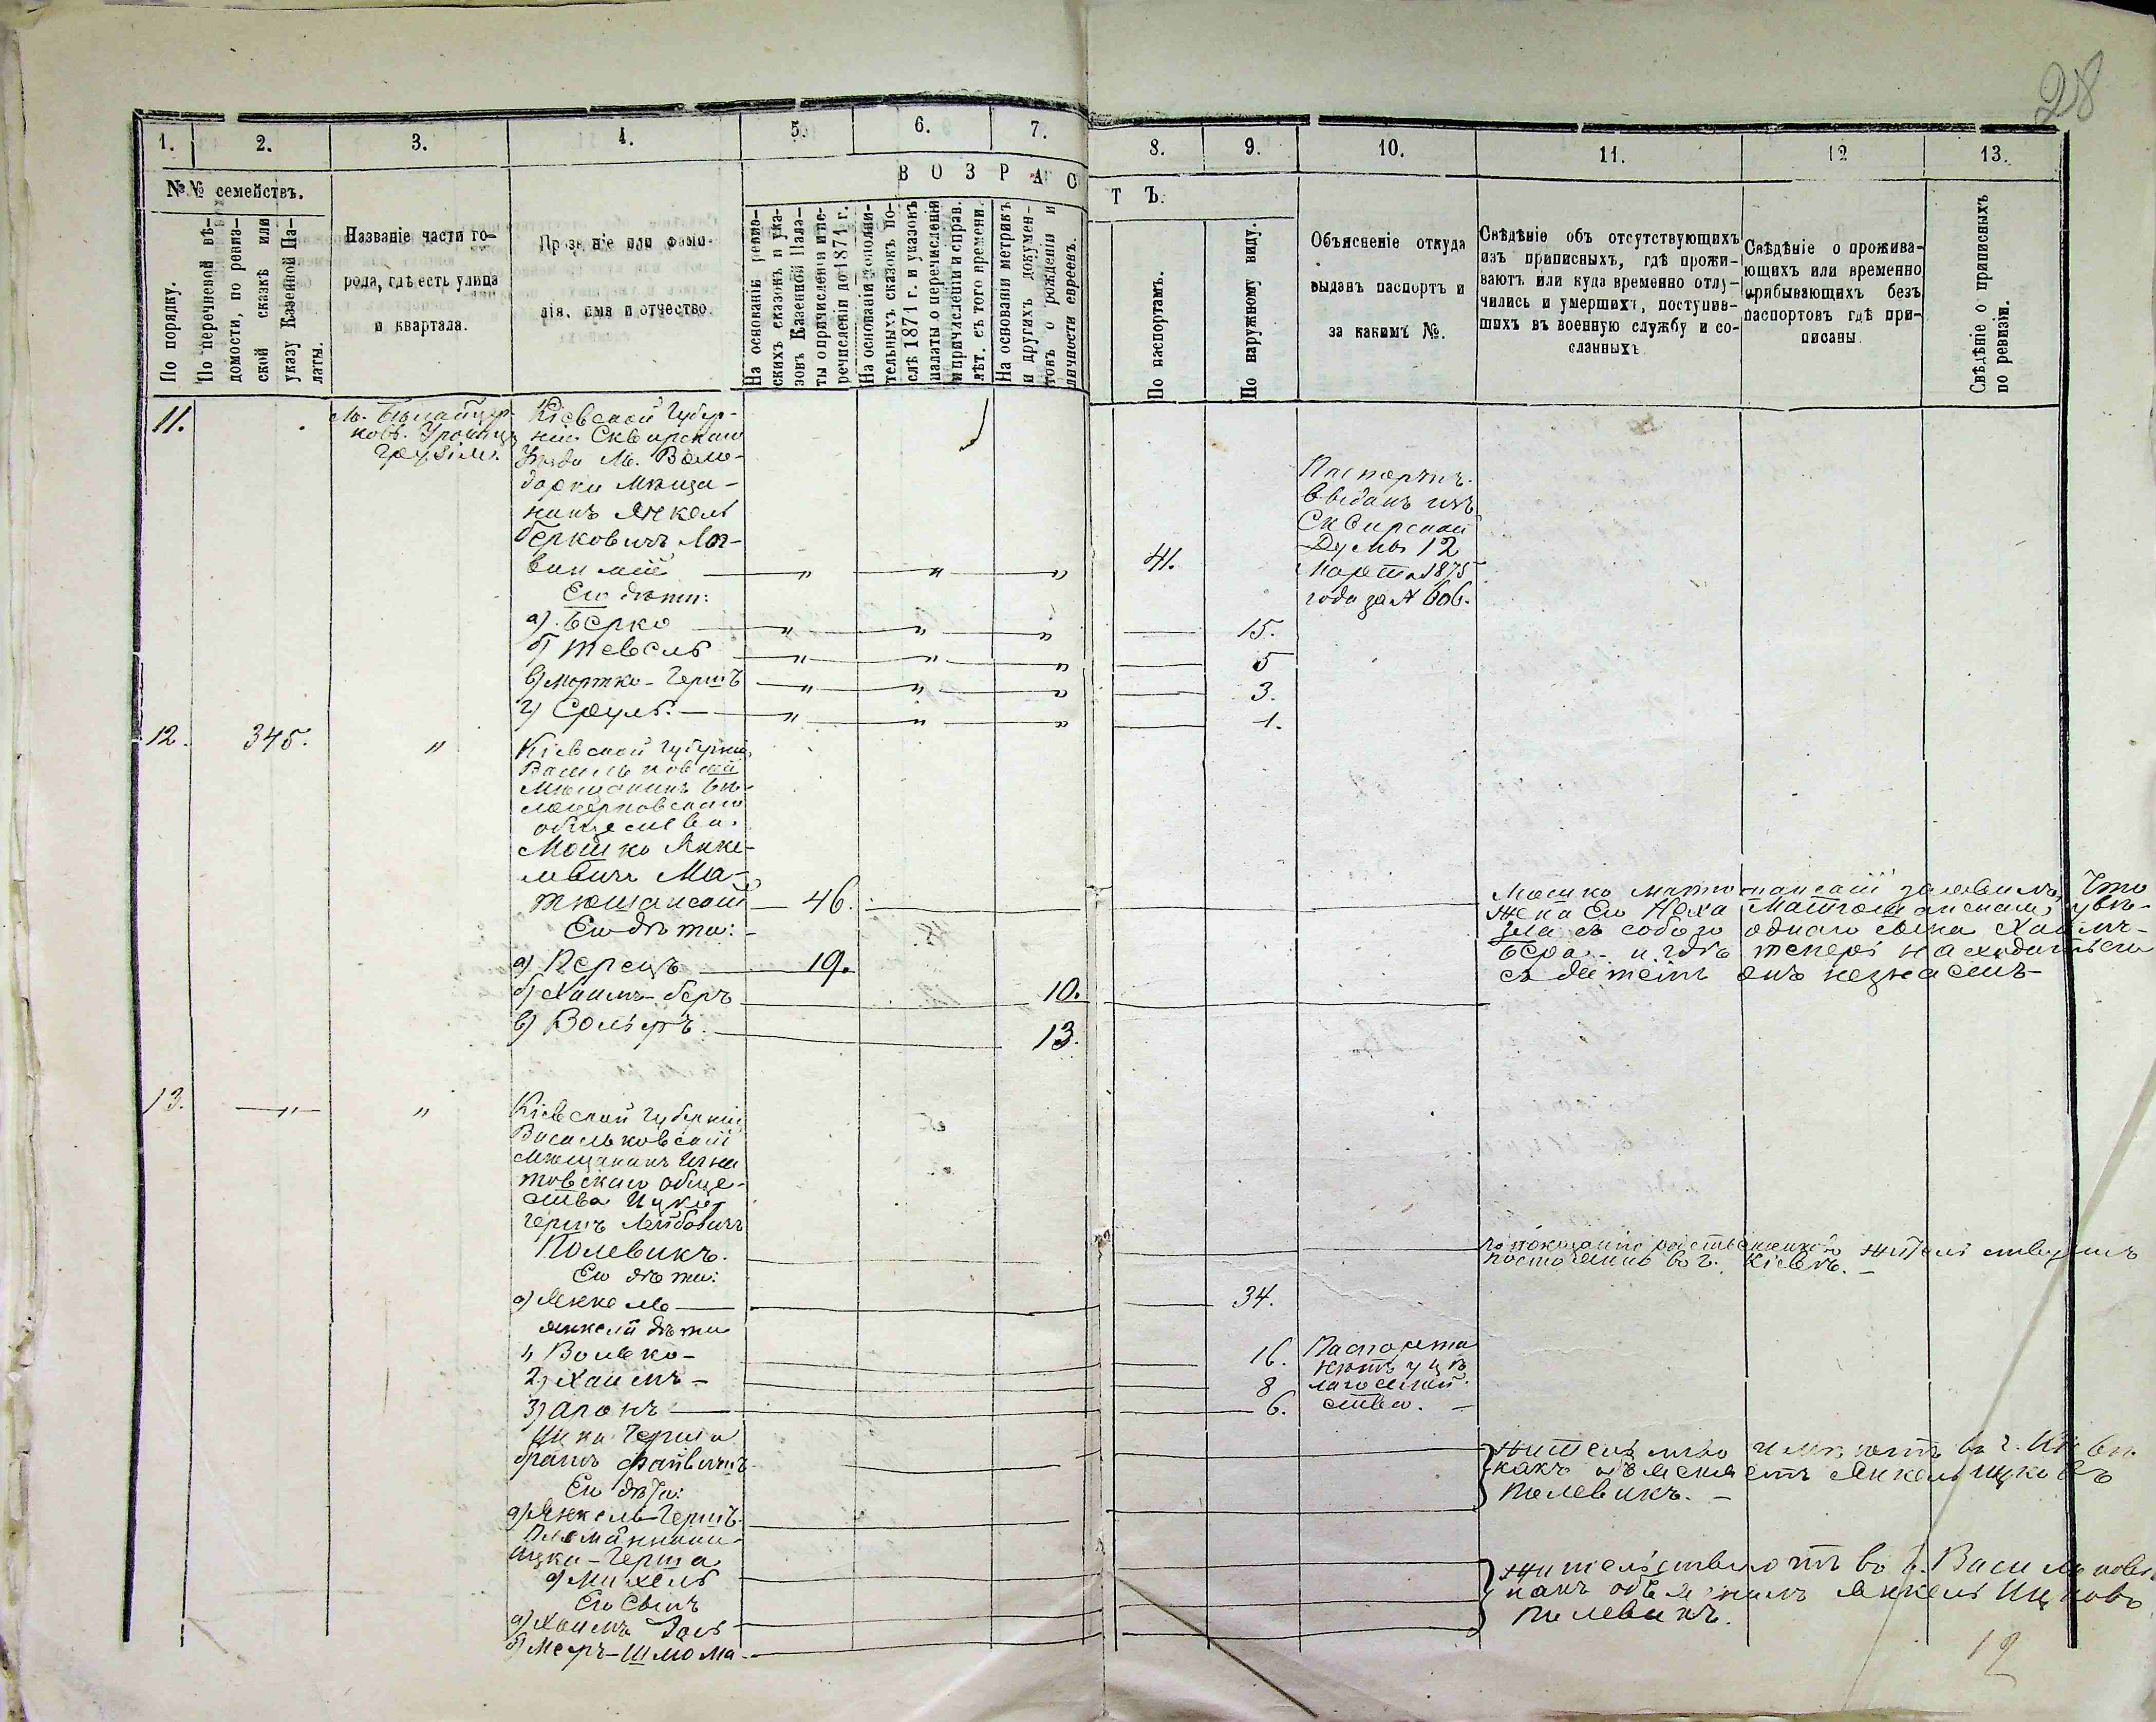 28
1. 2. 3. 4. 5. 6. 7. 8. 9. 10. 11. 12 13.
№№ семействъ.
В О З Р А С Т Ъ.
По порядку.
По перечневой вѣ-
домости, по ревиз-
ской сказкѣ или
указу Казенной Па-
латы.
Названіе части го-
рода, гдѣ есть улица
и квартала.
Прозваніе или фами-
лія, имя и отчество.
На основаніи ревиз-
скихъ сказокъ и ука-
зовъ Казенной Пала-
ты о причисленіи и пе-
речисленіи до 1874 г.
На основаніи дополни-
тельныхъ сказокъ по-
слѣ 1874 г. и указокъ
палаты о перечисленіи
и причисленіи и справ.
лѣт. съ того времени.
На основаніи метрикъ
и другихъ докумен-
товъ о рожденіи и
личности евреевъ.
По паспортамъ.
По наружному виду.
Объясненіе откуда
выданъ паспортъ и
за какимъ №.
Свѣдѣніе объ отсутствующихъ
изъ приписныхъ, гдѣ прожи-
ваютъ или куда временно отлу-
чились и умершихъ, поступив-
шихъ въ военную службу и со-
сланныхъ.
Свѣдѣніе о прожива-
ющихъ или временно
прибывающихъ безъ
паспортовъ гдѣ при-
писаны.
Свѣдѣніе о приписныхъ
по ревизіи.
11.
м. Бѣлайцер-
ковь.
Кіевской Губер-
ніи Сквирскаго
Уѣзда М. Воло-
дарки Мѣща-
нинъ Янкель
Берковичъ
" " " 41.
Паспортъ
выданъ изъ
Сквирской
Думы 12
Марта 1875
года за № 606.
Его дѣти:
а) Берко " " " 15.
б) Тевель " " " 5
в) Мортко-Гершъ " " " 3.
г) Сруль. " " " 1.
12. 345. "
Кіевской губерніи
Васильковскій
Мѣщанинъ Бѣ-
лоцерковскаго
общества.
Мошко Янке-
левичъ Ма-
тюшанскій 46.
Его дѣти:
а) Перецъ 19.
б) Хаимъ-беръ 10.
в) Вольфъ. 13.
Мошко Матюшанскій заявилъ, что
жена Его Неха Матюшанская, увѣ-
зла съ собою одного сына Хаимъ-
Бера и гдѣ теперь находиться
съ дитемъ онъ незнаетъ
13. " "
Кіевской губерніи
Васильковскій
Мѣщанинъ Игна
товскаго обще-
ства Ицко
гершъ Лейбовичъ
Полевикъ.
По показанію родственниковъ жительствуетъ
постоянно въ г. Кіевѣ.
Его дѣти:
а) Янкель 34.
Янкеля дѣти
1) Волько 16.
2) Хаимъ 8
3) Аронъ 6.
Паспорта
нѣтъ
Ицка Герша
братъ Файвишъ
Его дѣти:
а) Янкель-Гершъ.
Жительство имѣютъ въ г. Кіевѣ
какъ объясняетъ Янкель Ицковъ
Полевикъ.
Племянники
Ицка-Герша
а) Михель
Его Сынъ
а) Хаимъ
б) Меръ-Шлиома.
Жительствуютъ въ г. Васильковѣ
какъ объяснилъ Янкель Ицковъ
Полевикъ.
12